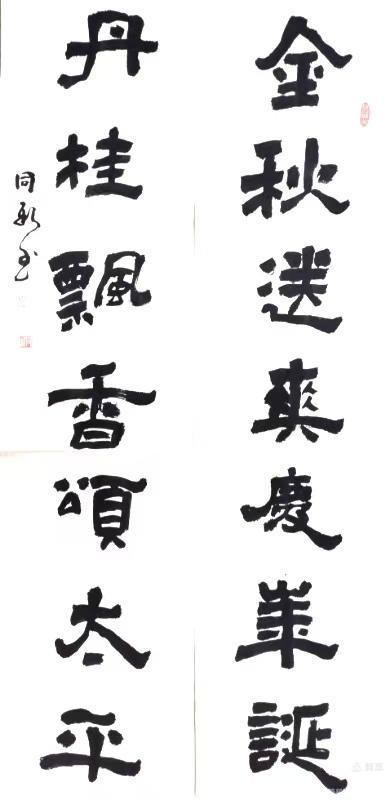 金秋送爽慶華誕
丹桂飄香頌太平